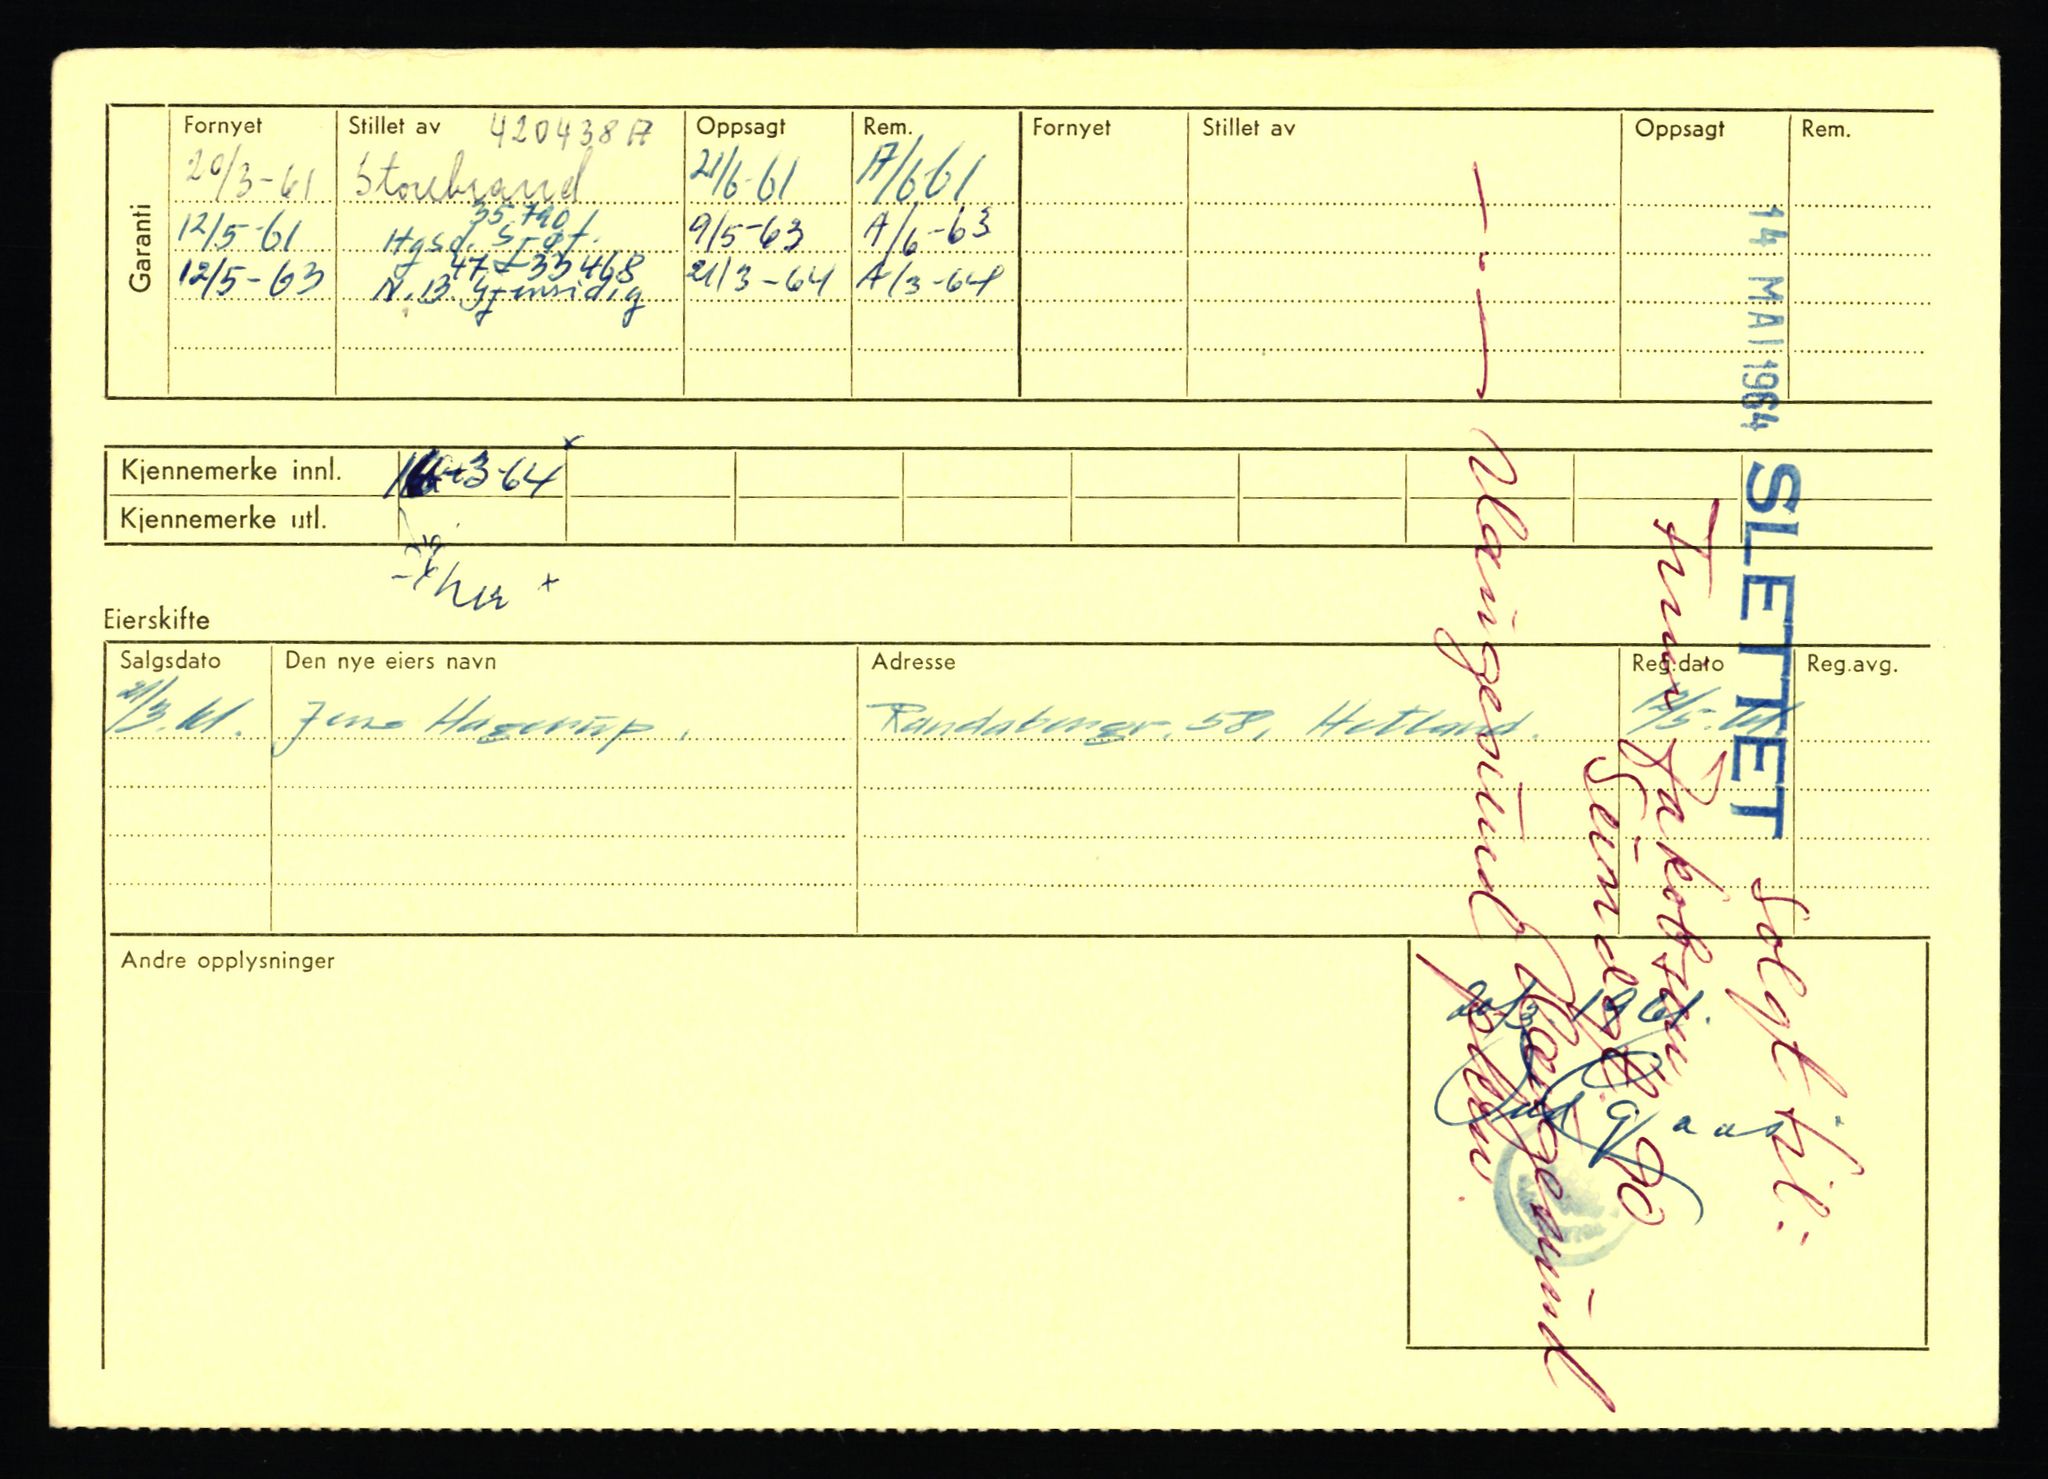 Garanti
Fornyet Stillet av 420438 A Oppsagt Rem. Fornyet Stillet av Oppsagt Rem.
20/3-61 Storebrand 21/6-61 A/6-61
35.790
12/5-61 Hgsd. Srgt. 9/5-63 A/6-63
33468
12/5-63 N.B. Gjensidig 21/3-64 A/3-64
Kjennemerke innl. 3-64
Kjennemerke utl.
Eierskifte
Salgsdato Den nye eiers navn Adresse Reg.dato Reg.avg.
21/3.61. Jens Hagerup. Randabergv. 58, Hetland. 12/5.61.
Andre opplysninger
20/3 1961.
14 MAI 1964 SLETTET
Solgt til:
Jakobsen
Haugesund
Haugesund